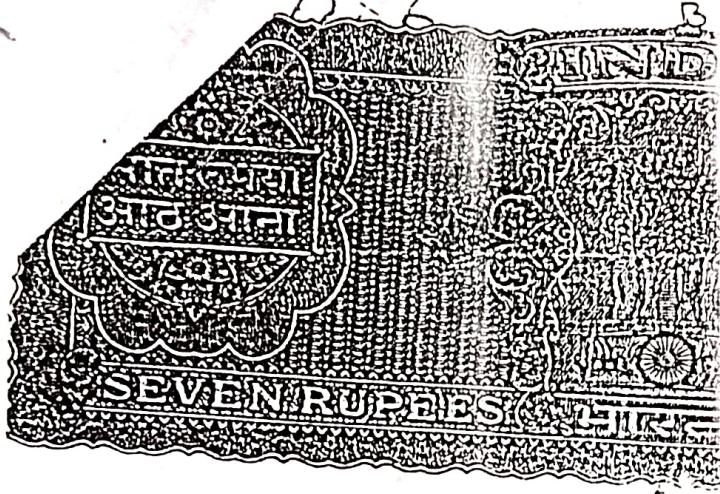 B
IND
सात रूपया
आठ आना
SEVEN RUPEES
भारत